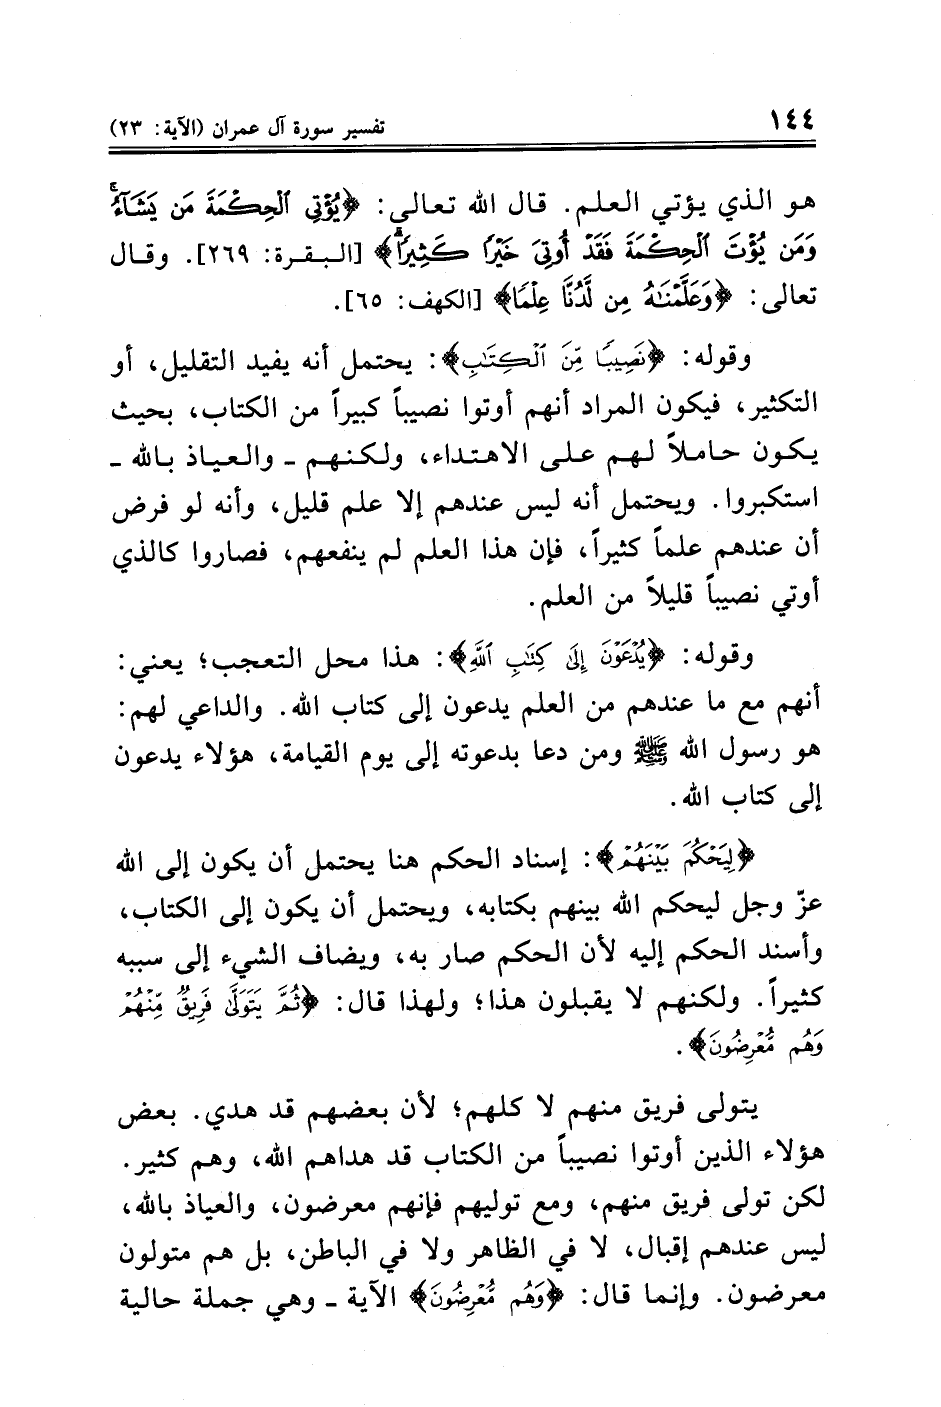 ١٤٤
تفسير سورة آل عمران (الآية: ٢٣)
هو الذي يؤتي العلم. قال الله تعالى: ﴿يُؤْتِي ٱلْحِكْمَةَ مَن يَشَآءُۚ
وَمَن يُؤْتَ ٱلْحِكْمَةَ فَقَدْ أُوتِيَ خَيْرًا كَثِيرًاۗ﴾ [البقرة: ٢٦٩]. وقال
تعالى: ﴿وَعَلَّمْنَٰهُ مِن لَّدُنَّا عِلْمًا﴾ [الكهف: ٦٥].
وقوله: ﴿نَصِيبًا مِّنَ ٱلْكِتَٰبِ﴾: يحتمل أنه يفيد التقليل، أو
التكثير، فيكون المراد أنهم أوتوا نصيباً كبيراً من الكتاب، بحيث
يكون حاملاً لهم على الاهتداء، ولكنهم ـ والعياذ بالله ـ
استكبروا. ويحتمل أنه ليس عندهم إلا علم قليل، وأنه لو فرض
أن عندهم علماً كثيراً، فإن هذا العلم لم ينفعهم، فصاروا كالذي
أوتي نصيباً قليلاً من العلم.
وقوله: ﴿يُدْعَوْنَ إِلَىٰ كِتَٰبِ ٱللَّهِ﴾: هذا محل التعجب؛ يعني:
أنهم مع ما عندهم من العلم يدعون إلى كتاب الله. والداعي لهم:
هو رسول الله ﷺ ومن دعا بدعوته إلى يوم القيامة، هؤلاء يدعون
إلى كتاب الله.
﴿لِيَحْكُمَ بَيْنَهُمْ﴾: إسناد الحكم هنا يحتمل أن يكون إلى الله
عزّ وجل ليحكم الله بينهم بكتابه، ويحتمل أن يكون إلى الكتاب،
وأسند الحكم إليه لأن الحكم صار به، ويضاف الشيء إلى سببه
كثيراً. ولكنهم لا يقبلون هذا؛ ولهذا قال: ﴿ثُمَّ يَتَوَلَّىٰ فَرِيقٌ مِّنْهُمْ
وَهُم مُّعْرِضُونَ﴾.
يتولى فريق منهم لا كلهم؛ لأن بعضهم قد هدي. بعض
هؤلاء الذين أوتوا نصيباً من الكتاب قد هداهم الله، وهم كثير.
لكن تولى فريق منهم، ومع توليهم فإنهم معرضون، والعياذ بالله،
ليس عندهم إقبال، لا في الظاهر ولا في الباطن، بل هم متولون
معرضون. وإنما قال: ﴿وَهُم مُّعْرِضُونَ﴾ الآية ـ وهي جملة حالية